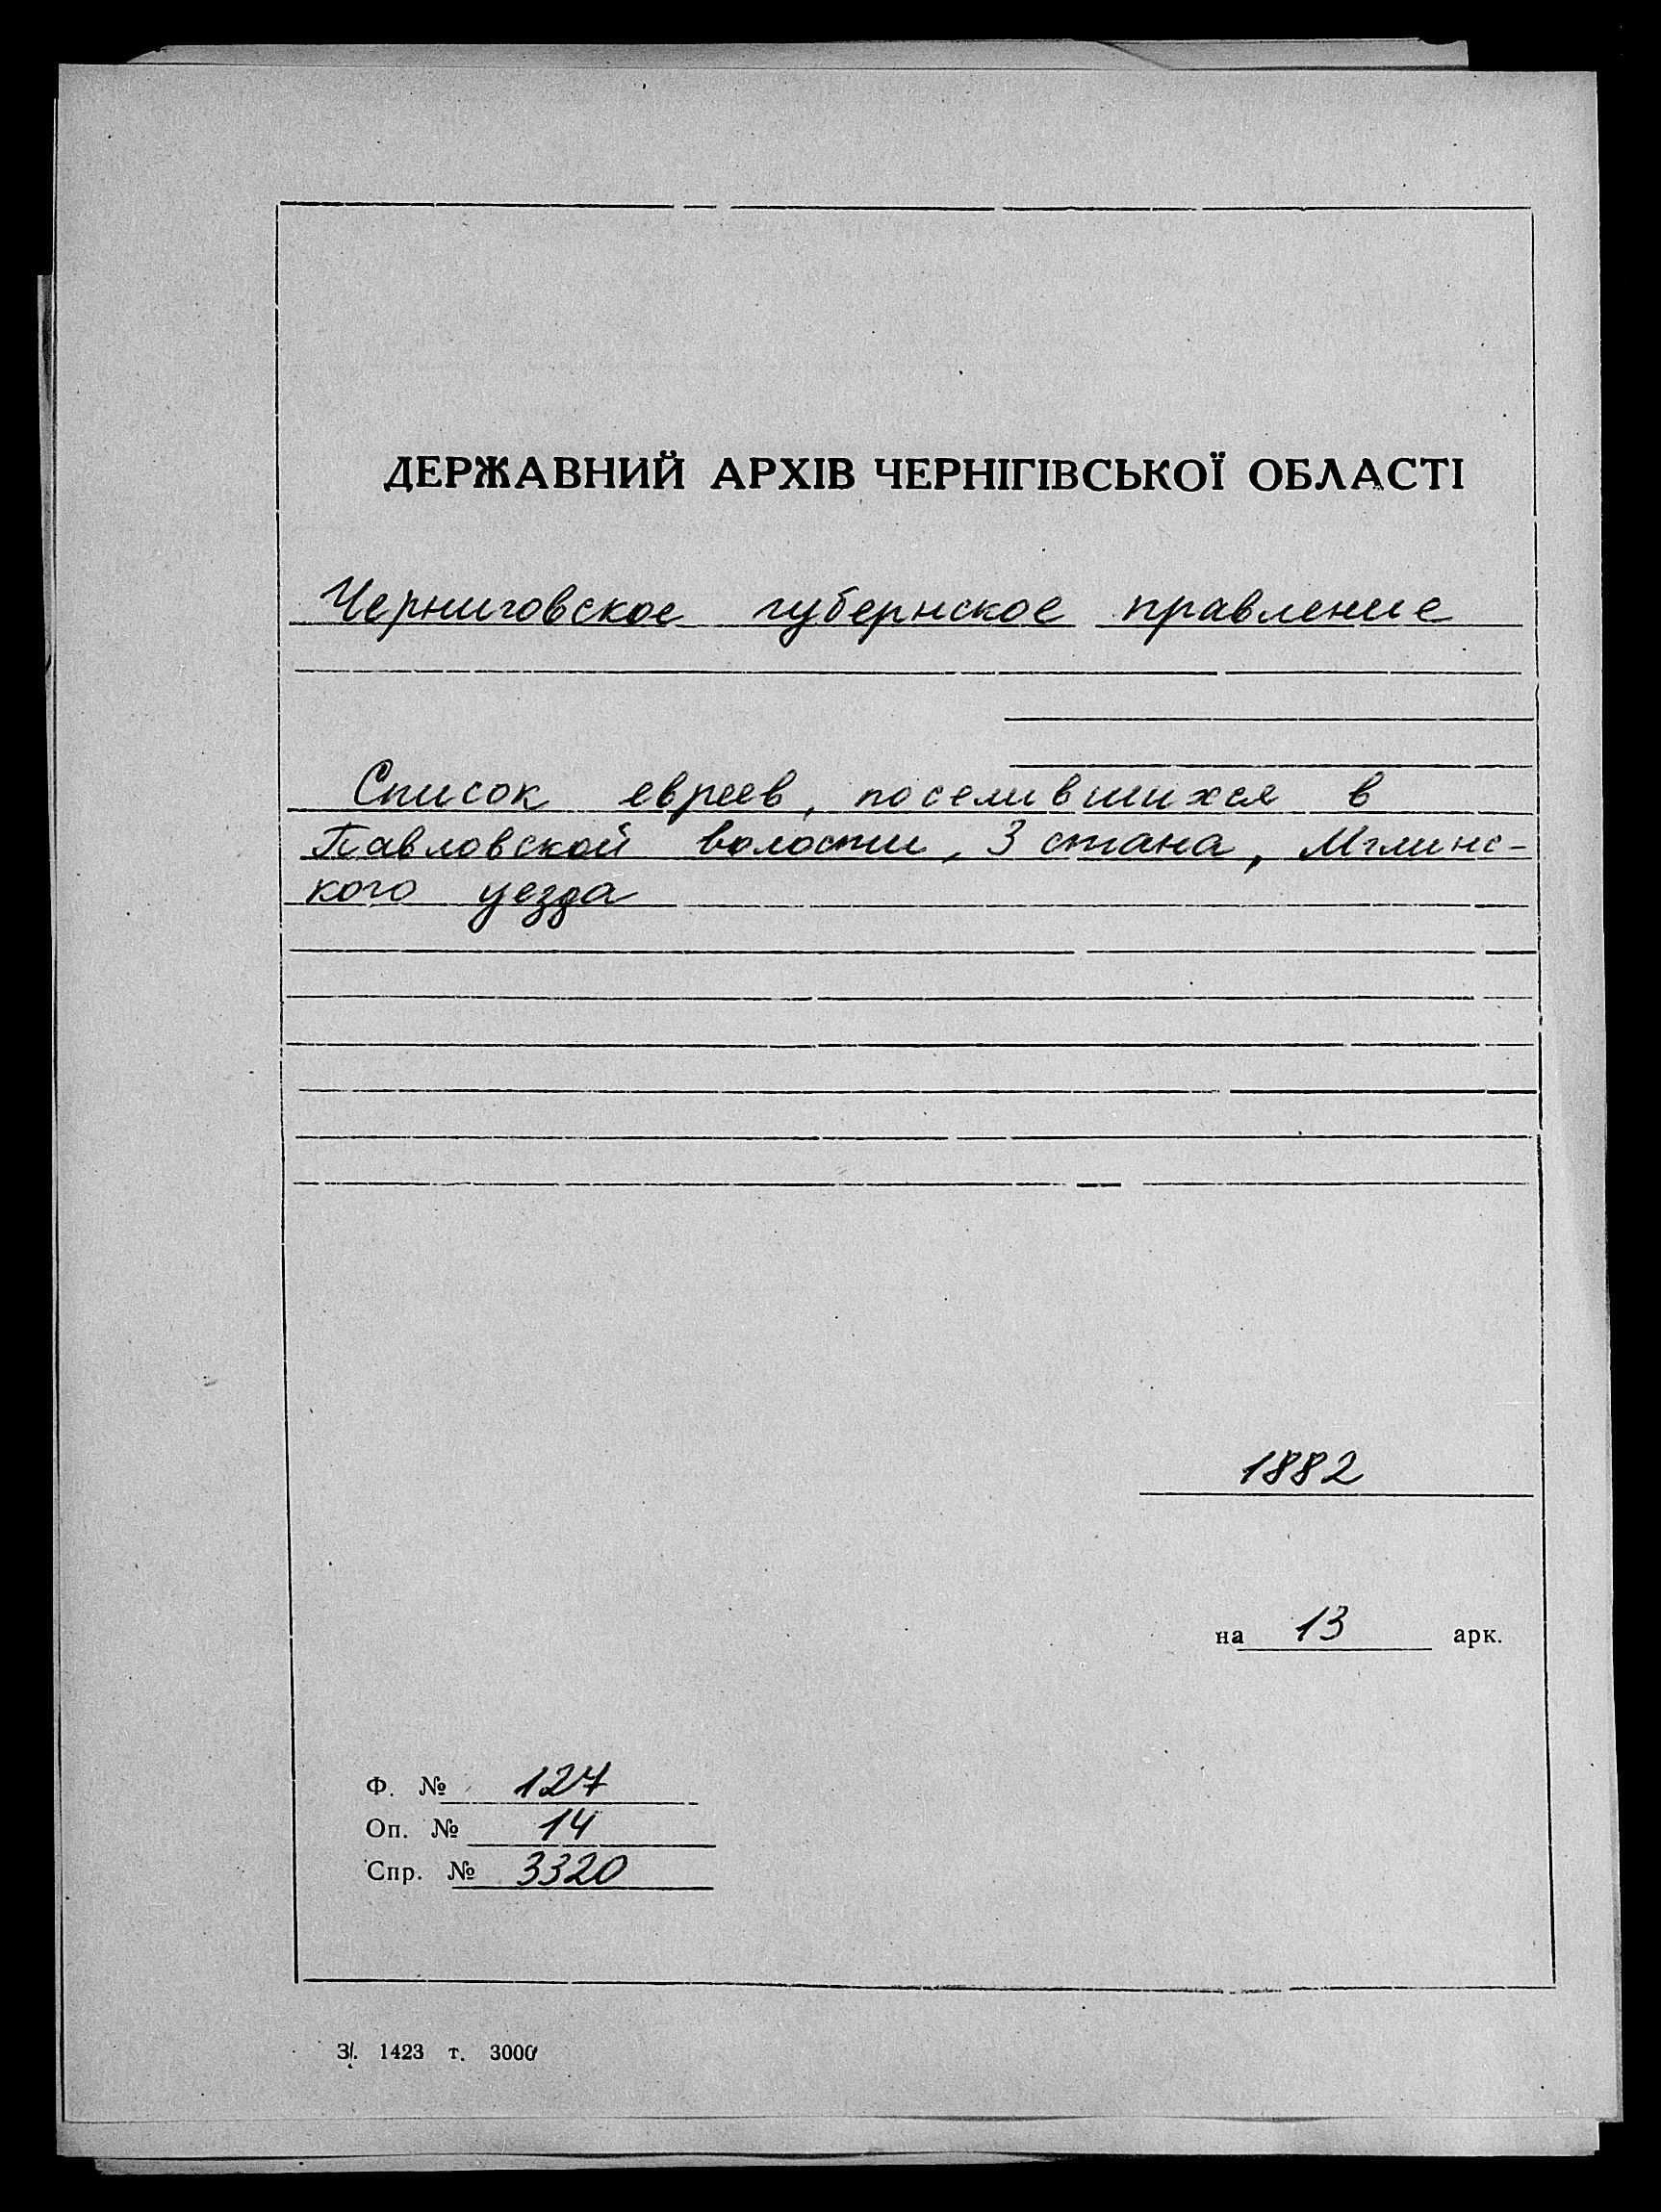 ДЕРЖАВНИЙ АРХІВ ЧЕРНІГІВСЬКОЇ ОБЛАСТІ
Черниговское губернское правление
Список евреев, поселившихся в
Павловской волости, 3 стана, Мглинс-
кого уезда
1882
на 13 арк.
Ф. № 127
Оп. № 14
Спр. № 3320
З. 1423 т. 3000